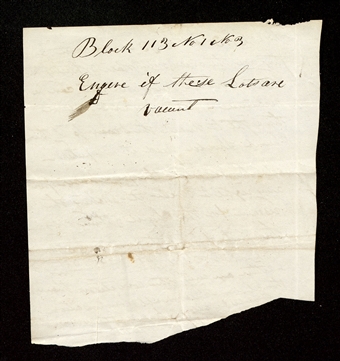 Block 113 No 1 & 3
Enqure if these Lots are
vacant